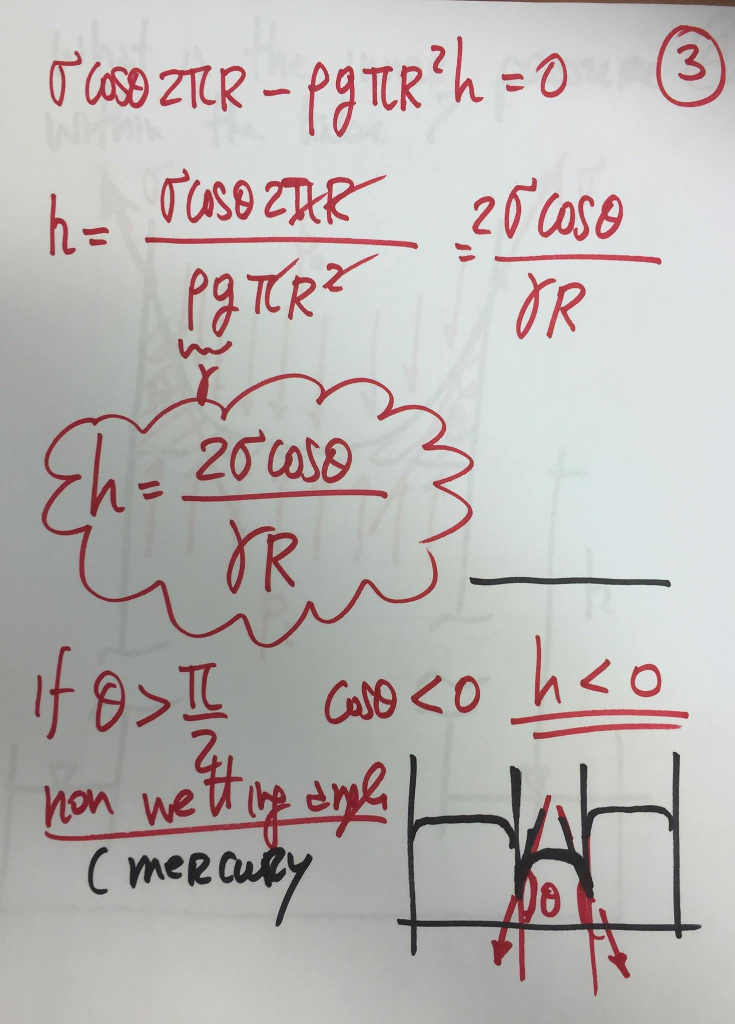 σcosθ2πR - ρgπR²h = 0
3
h = σcosθ2πR / ρgπR² = 2σcosθ / γR
γ
h = 2σcosθ / γR
If θ > π/2 cosθ < 0 h < 0
non wetting angle
(mercury
θ